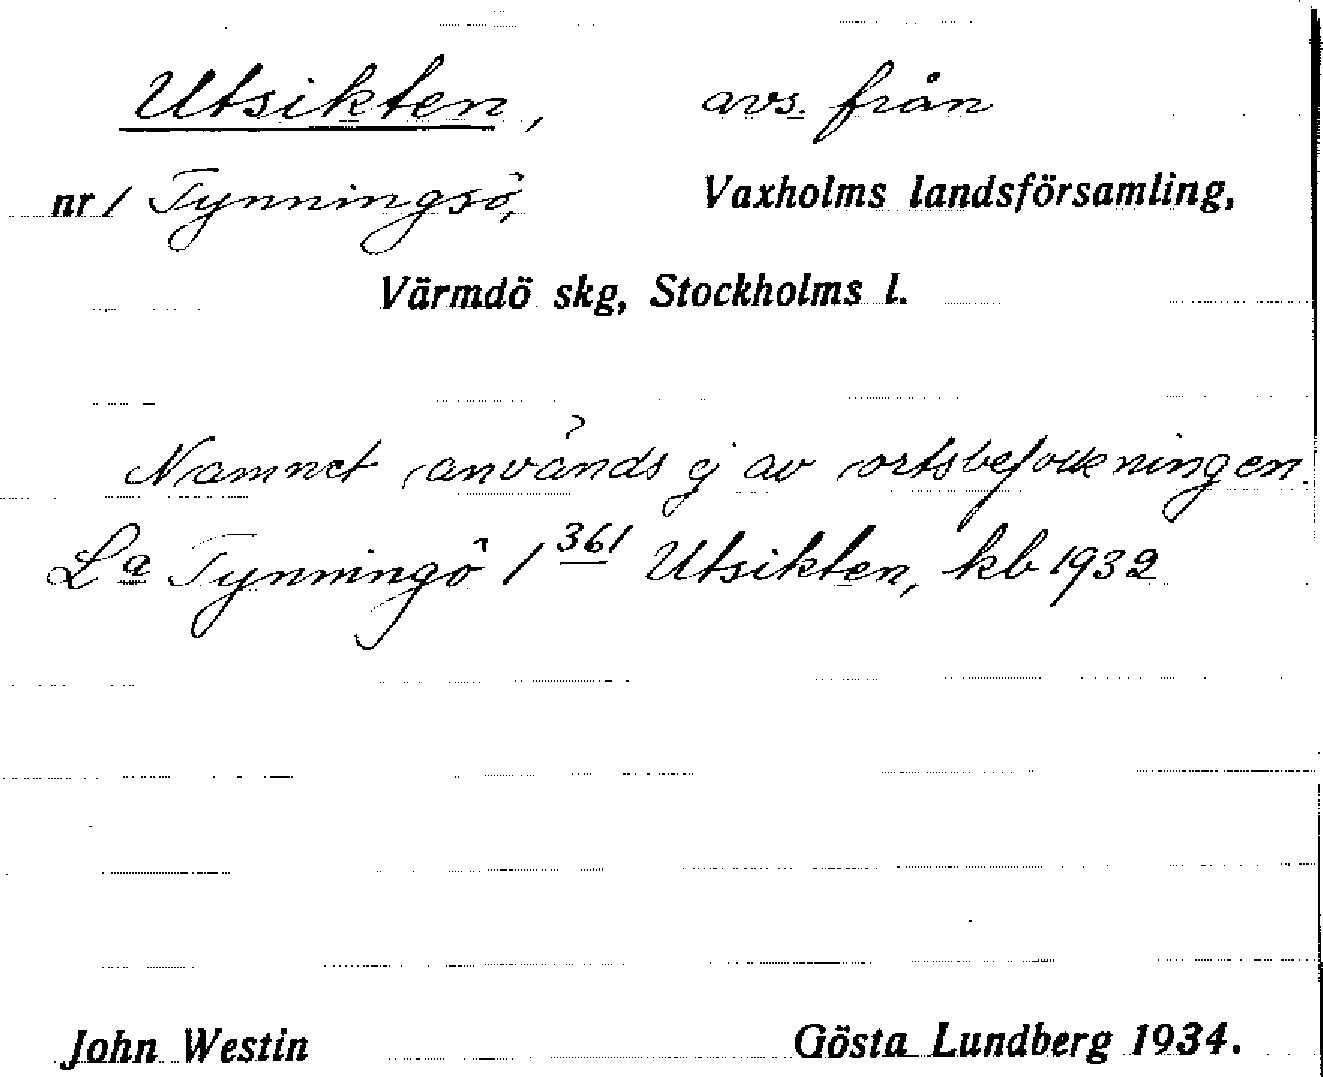 Utsikten, avs. från
nr 1 Tynningsö, Vaxholms landsförsamling,
Värmdö skg, Stockholms l.
Namnet används ej av ortsbefolkningen.
La Tynningö 1 361 Utsikten, kb 1932
John Westin Gösta Lundberg 1934.